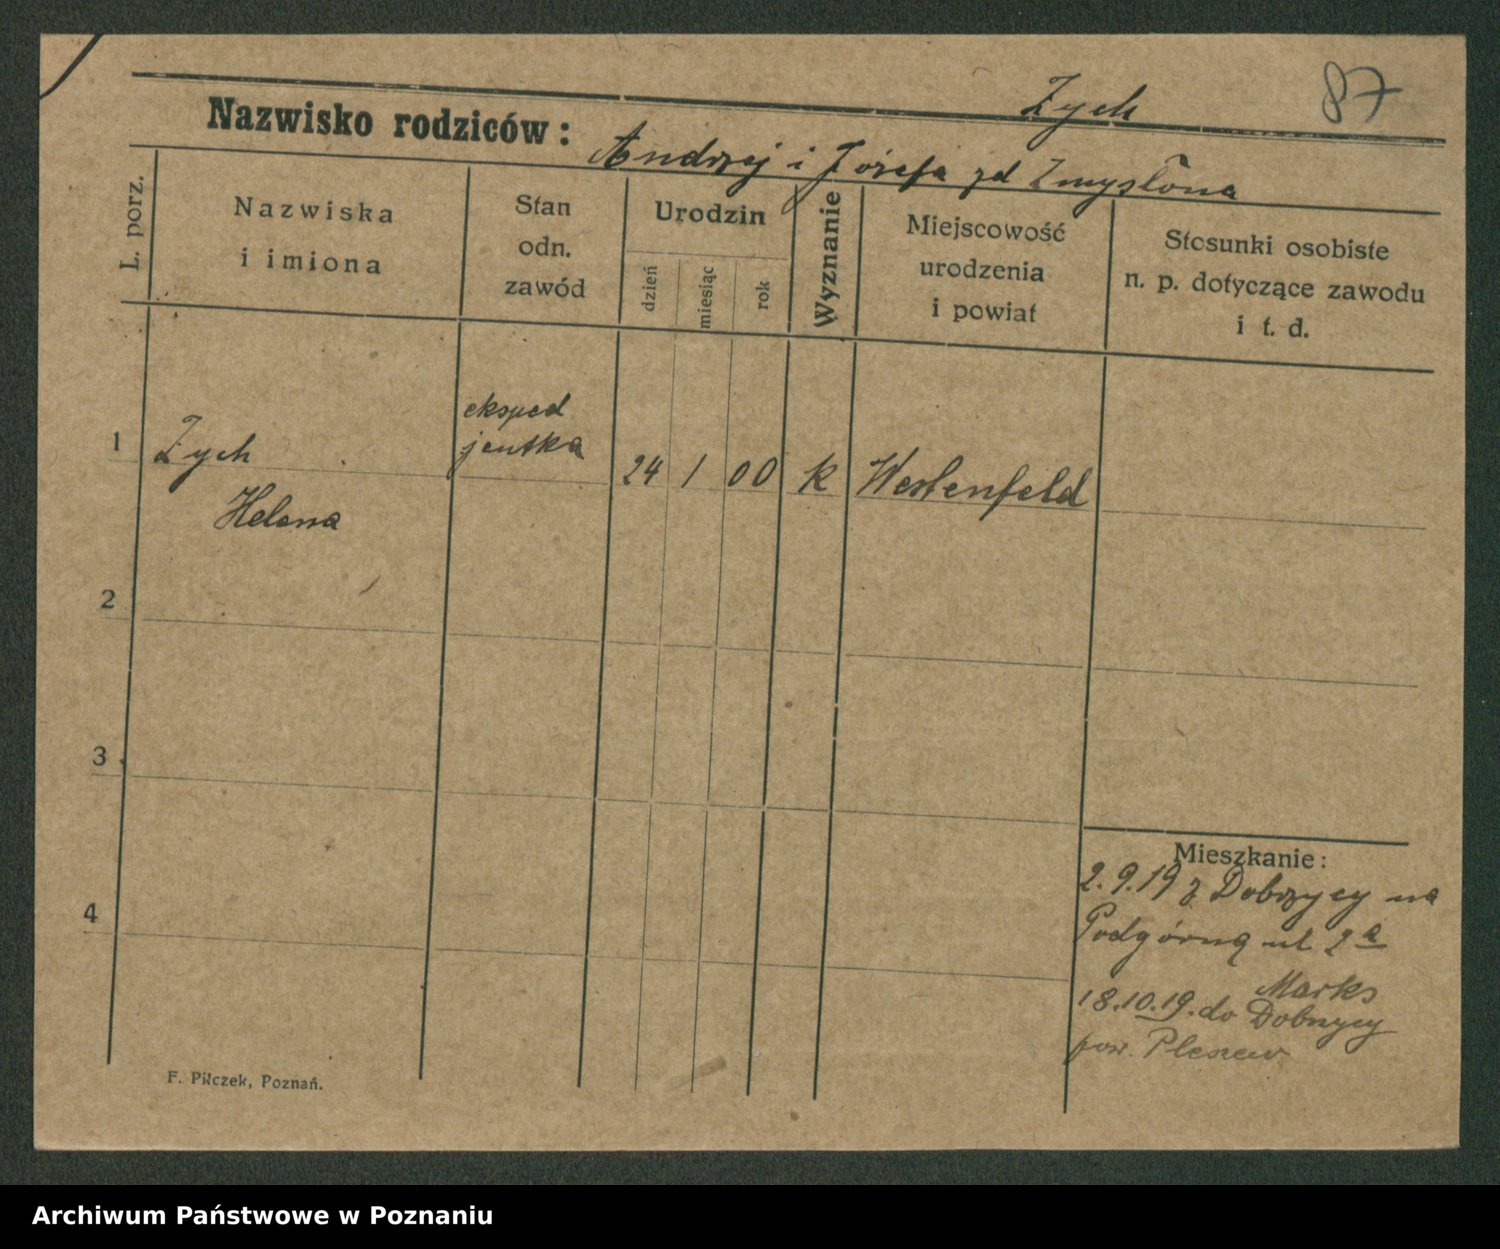 87
Zych
Nazwisko rodziców: Andrzej i Józefa zd Zmyślona
L. porz.
Nazwiska i imiona
Stan odn. zawód
Urodzin
dzień
miesiąc
rok
Wyznanie
Miejscowość urodzenia i powiat
Stosunki osobiste n. p. dotyczące zawodu i t. d.
eksped
1 Zych jentka 24 1 00 k Westenfeld
Helena
2
3
4
Mieszkanie:
2.9.19 z Dobrzycy na
Podgórną ul 2a
Marks
18.10.19. do Dobrzycy
pow. Pleszew
F. Pilczek, Poznań.
Archiwum Państwowe w Poznaniu